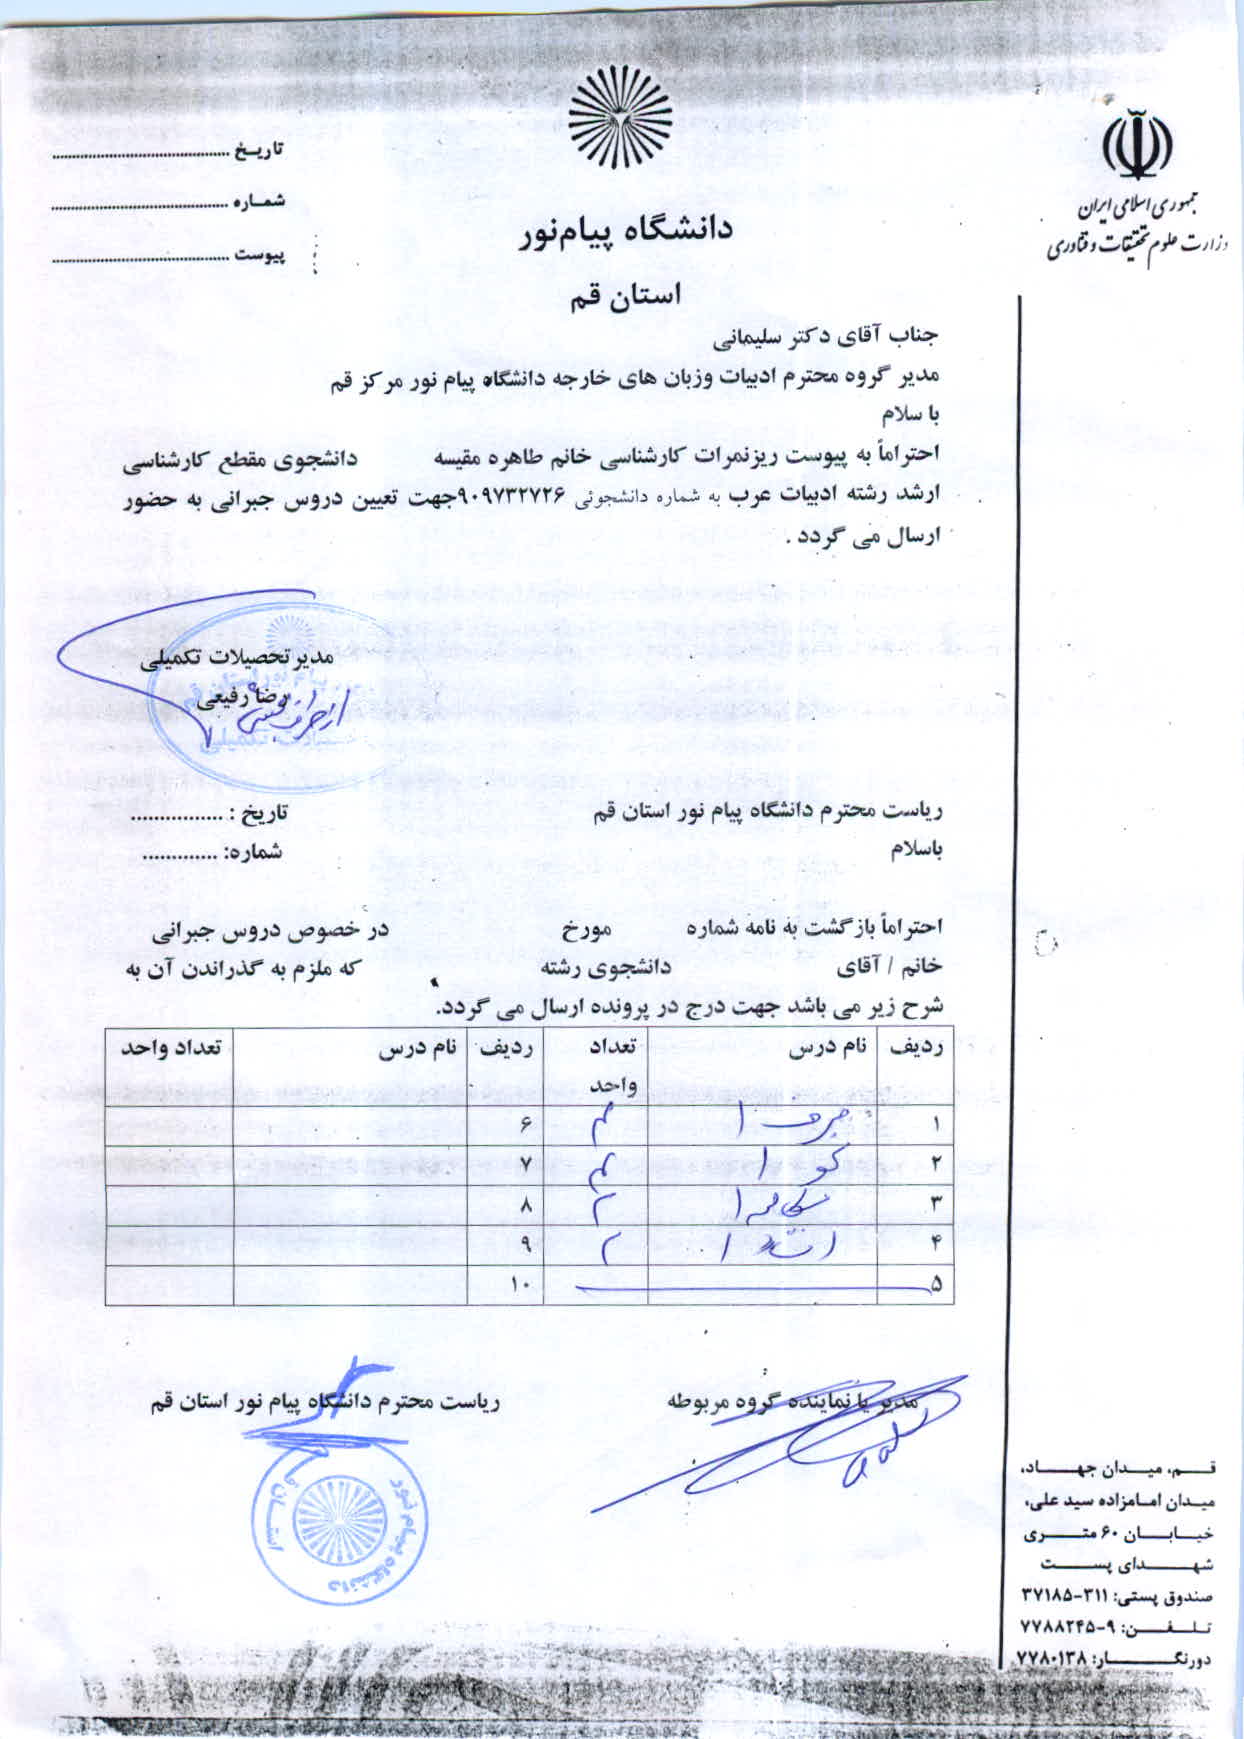 جمهوری اسلامی ایران
وزارت علوم تحقیقات و فناوری
تاریـخ ............................................
شمـاره ............................................
پیوست ............................................
دانشگاه پیام‌نور
استان قم
جناب آقای دکتر سلیمانی
مدیر گروه محترم ادبیات وزبان های خارجه دانشگاه پیام نور مرکز قم
با سلام
احتراماً به پیوست ریزنمرات کارشناسی خانم طاهره مقیسه دانشجوی مقطع کارشناسی
ارشد رشته ادبیات عرب به شماره دانشجوئی ۹۰۹۷۳۲۷۲۶جهت تعیین دروس جبرانی به حضور
ارسال می گردد .
مدیر تحصیلات تکمیلی
رضا رفیعی
ریاست محترم دانشگاه پیام نور استان قم تاریخ : ................
باسلام شماره: .............
احتراماً بازگشت به نامه شماره مورخ در خصوص دروس جبرانی
خانم / آقای دانشجوی رشته که ملزم به گذراندن آن به
شرح زیر می باشد جهت درج در پرونده ارسال می گردد.
ردیف نام درس تعداد واحد ردیف نام درس تعداد واحد
۱ صرف ۱ ۴ ۶
۲ نحو ۱ ۴ ۷
۳ مکالمه ۱ ۲ ۸
۴ ۱ ۲ ۹
۵ ۱۰
مدیر یا نماینده گروه مربوطه ریاست محترم دانشگاه پیام نور استان قم
دانشگاه پیام نور
استان قم
قــم، میـدان جهــاد،
میـدان امـامزاده سید علی،
خیــابــان ۶۰ متــری
شهــدای پســت
صندوق پستی: ۳۱۱-۳۷۱۸۵
تلــفــن: ۹-۷۷۸۸۲۴۵
دورنگــار: ۷۷۸۰۱۳۸